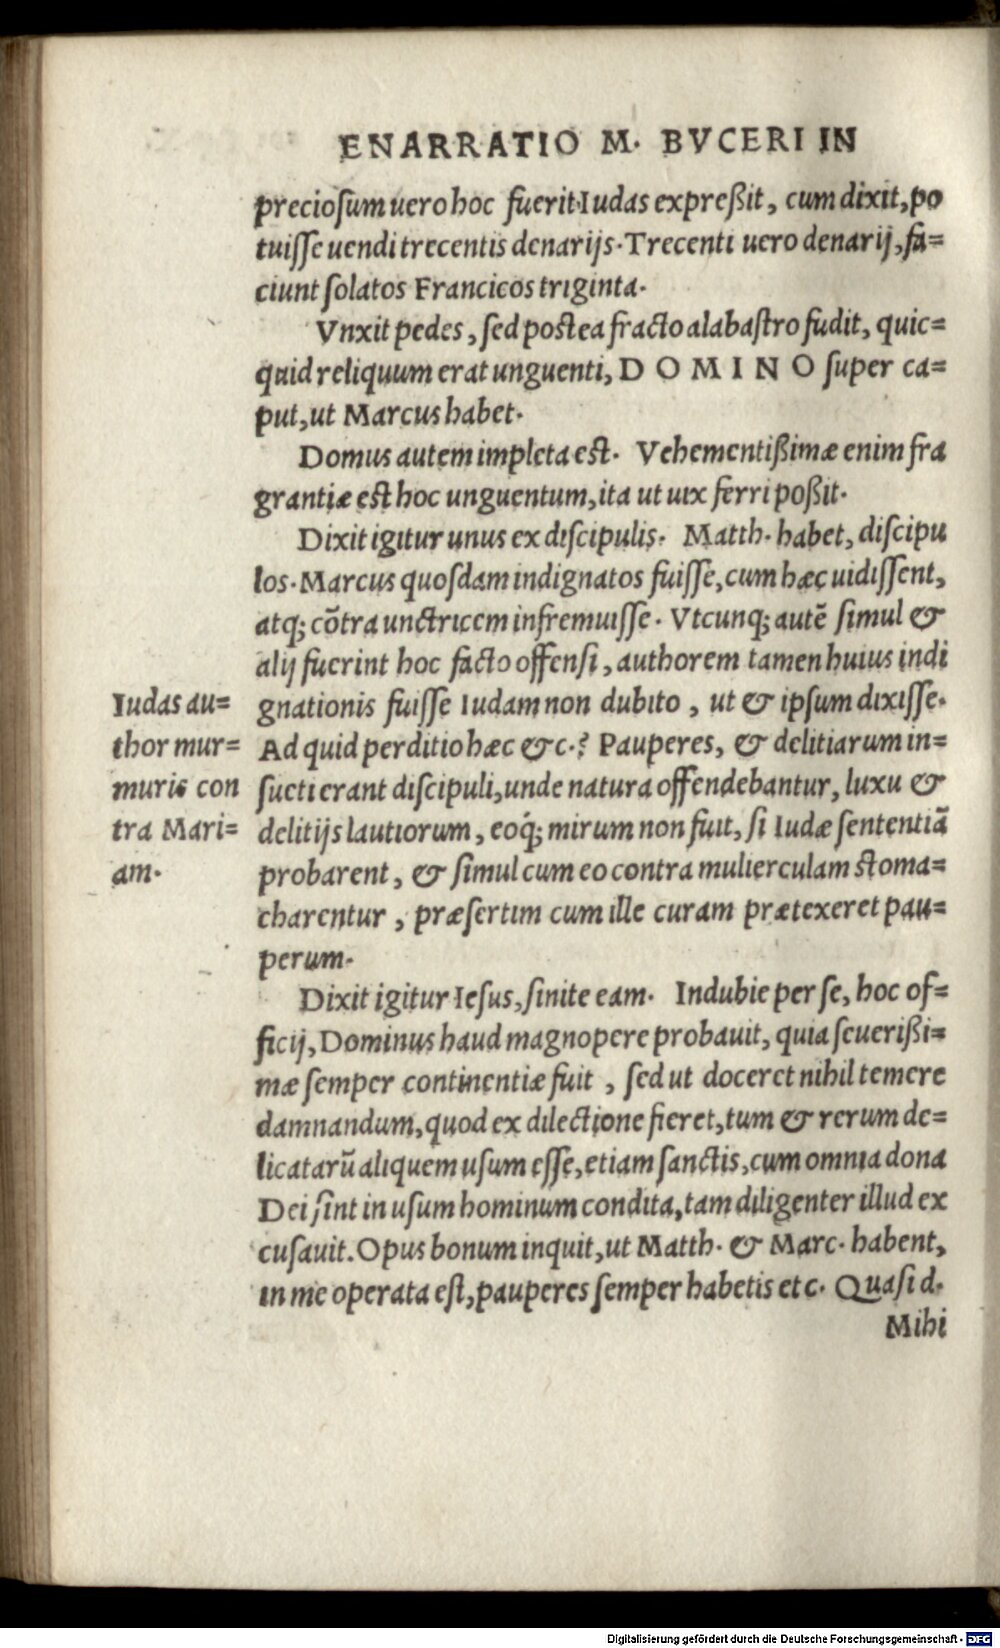 ENARRATIO M. BVCERI IN
precioſum uero hoc fuerit Iudas expreßit, cum dixit, po
tuiſſe uendi trecentis denarijs. Trecenti uero denarij, fa=
ciunt ſolatos Francicos triginta.
Vnxit pedes, ſed poſtea fracto alabaſtro fudit, quic=
quid reliquum erat unguenti, D O M I N O ſuper ca=
put, ut Marcus habet.
Domus autem impleta eſt. Vehementißimæ enim fra
grantiæ eſt hoc unguentum, ita ut uix ferri poßit.
Dixit igitur unus ex diſcipulis. Matth. habet, diſcipu
los. Marcus quoſdam indignatos fuiſſe, cum hæc uidiſſent,
atq; cõtra unctricem infremuiſſe. Vtcunq; autẽ ſimul &
alij fuerint hoc facto offenſi, authorem tamen huius indi
gnationis fuiſſe Iudam non dubito, ut & ipſum dixiſſe.
Ad quid perditio hæc &c.? Pauperes, & delitiarum in=
ſueti erant diſcipuli, unde natura offendebantur, luxu &
delitijs lautiorum, eoq́; mirum non fuit, ſi Iudæ ſententiã
probarent, & ſimul cum eo contra mulierculam ſtoma=
charentur, præſertim cum ille curam prætexeret pau=
perum.
Iudas au=
thor mur=
muris con
tra Mari=
am.
Dixit igitur Ieſus, ſinite eam. Indubie per ſe, hoc of=
ficij, Dominus haud magnopere probauit, quia ſeuerißi=
mæ ſemper continentiæ fuit, ſed ut doceret nihil temere
damnandum, quod ex dilectione fieret, tum & rerum de=
licatarũ aliquem uſum eſſe, etiam ſanctis, cum omnia dona
Dei ſint in uſum hominum condita, tam diligenter illud ex
cuſauit. Opus bonum inquit, ut Matth. & Marc. habent,
in me operata eſt, pauperes ſemper habetis etc. Quaſi d.
Mihi
Digitalisierung gefördert durch die Deutsche Forschungsgemeinschaft - DFG